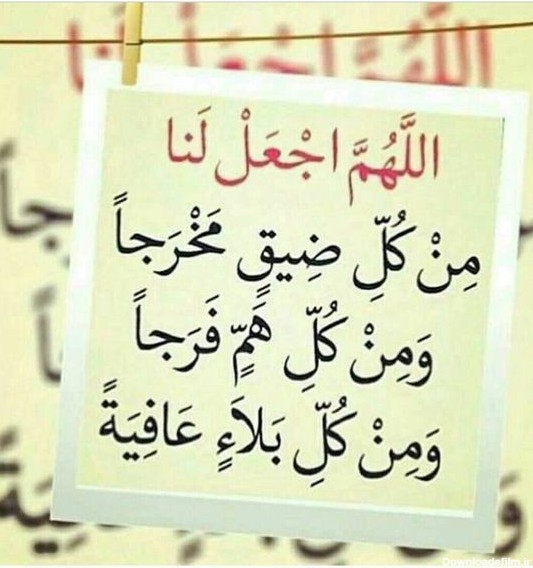 اللَّهُمَّ اجْعَلْ لَنا
مِنْ كُلِّ ضِيقٍ مَخْرَجاً
وَمِنْ كُلِّ هَمٍّ فَرَجاً
وَمِنْ كُلِّ بَلاَءٍ عَافِيَةً
Downloadefilm.ir